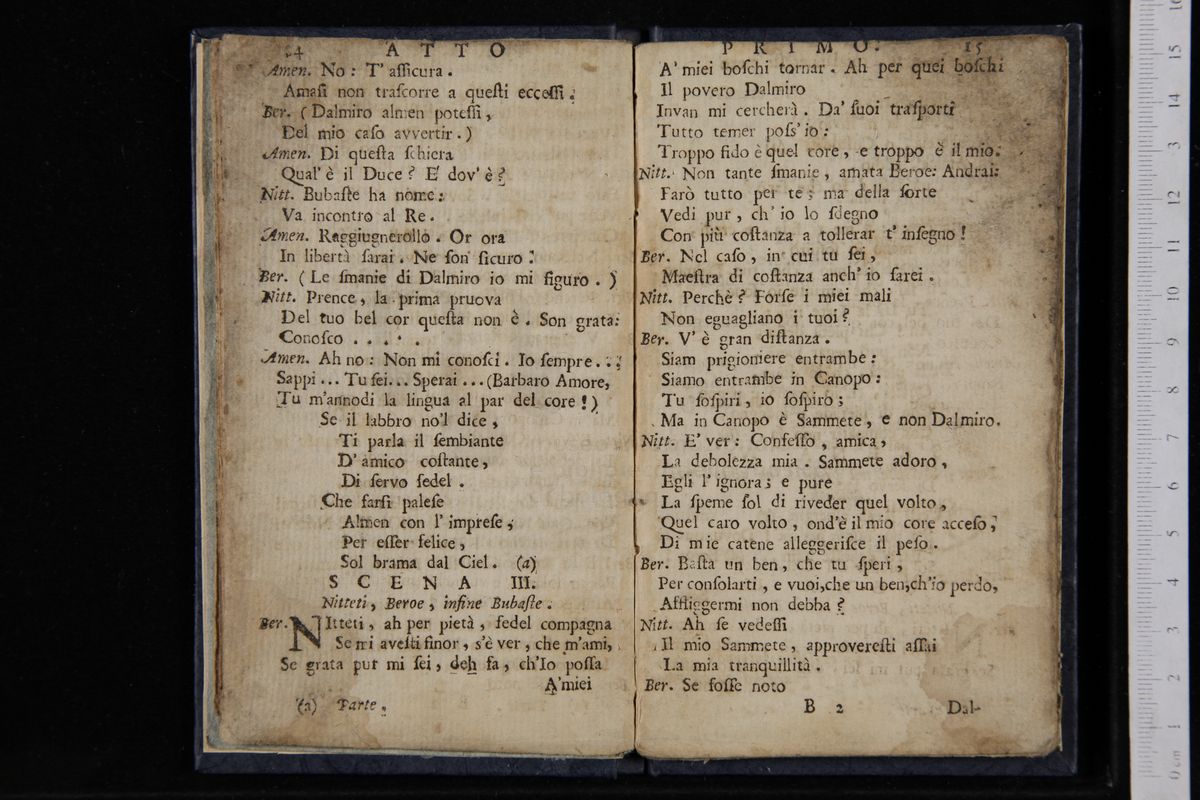 24 ATTO
Amen. No : T' aſſicura .
Amaſi non traſcorre a queſti ecceſſi .
Ber. ( Dalmiro almen poteſſi ,
Del mio caſo avvertir . )
Amen. Di queſta ſchiera
Qual' è il Duce ? E' dov' è ?
Nitt. Bubaſte ha nome :
Va incontro al Re .
Amen. Raggiugnerollo . Or ora
In libertà ſarai . Ne ſon ſicuro .
Ber. ( Le ſmanie di Dalmiro io mi figuro . )
Nitt. Prence , la prima pruova
Del tuo bel cor queſta non è . Son grata :
Conoſco . . . . .
Amen. Ah no : Non mi conoſci . Io ſempre . . .
Sappi ... Tu ſei ... Sperai ... (Barbaro Amore,
Tu m'annodi la lingua al par del core ! )
Se il labbro no'l dice ,
Ti parla il ſembiante
D' amico coſtante ,
Di ſervo fedel .
Che farſi paleſe
Almen con l' impreſe ,
Per eſſer felice ,
Sol brama dal Ciel . (a)
SCENA III.
Nitteti , Beroe , infine Bubaſte .
Ber. NItteti , ah per pietà , fedel compagna
Se mi aveſti finor , s'è ver , che m'ami ,
Se grata pur mi ſei , deh fa , ch'Io poſſa
A'miei
(a) Parte .
PRIMO. 15
A' miei boſchi tornar . Ah per quei boſchi
Il povero Dalmiro
Invan mi cercherà . Da' ſuoi traſporti
Tutto temer poſs' io :
Troppo fido è quel core , e troppo è il mio .
Nitt. Non tante ſmanie , amata Beroe : Andrai :
Farò tutto per te ; ma della ſorte
Vedi pur , ch' io lo ſdegno
Con più coſtanza a tollerar t' inſegno !
Ber. Nel caſo , in cui tu ſei ,
Maeſtra di coſtanza anch' io ſarei .
Nitt. Perchè ? Forſe i miei mali
Non eguagliano i tuoi ?
Ber. V' è gran diſtanza .
Siam prigioniere entrambe :
Siamo entrambe in Canopo :
Tu ſoſpiri , io ſoſpiro ;
Ma in Canopo è Sammete , e non Dalmiro .
Nitt. E' ver : Confeſſo , amica ,
La debolezza mia . Sammete adoro ,
Egli l' ignora ; e pure
La ſpeme ſol di riveder quel volto ,
Quel caro volto , ond'è il mio core acceſo ,
Di mie catene alleggeriſce il peſo .
Ber. Baſta un ben , che tu ſperi ,
Per conſolarti , e vuoi,che un ben,ch'io perdo,
Affliggermi non debba ?
Nitt. Ah ſe vedeſſi
Il mio Sammete , approvereſti aſſai
La mia tranquillità .
Ber. Se foſſe noto
B 2 Dal-
0 cm 1 2 3 4 5 6 7 8 9 10 11 12 13 14 15 16